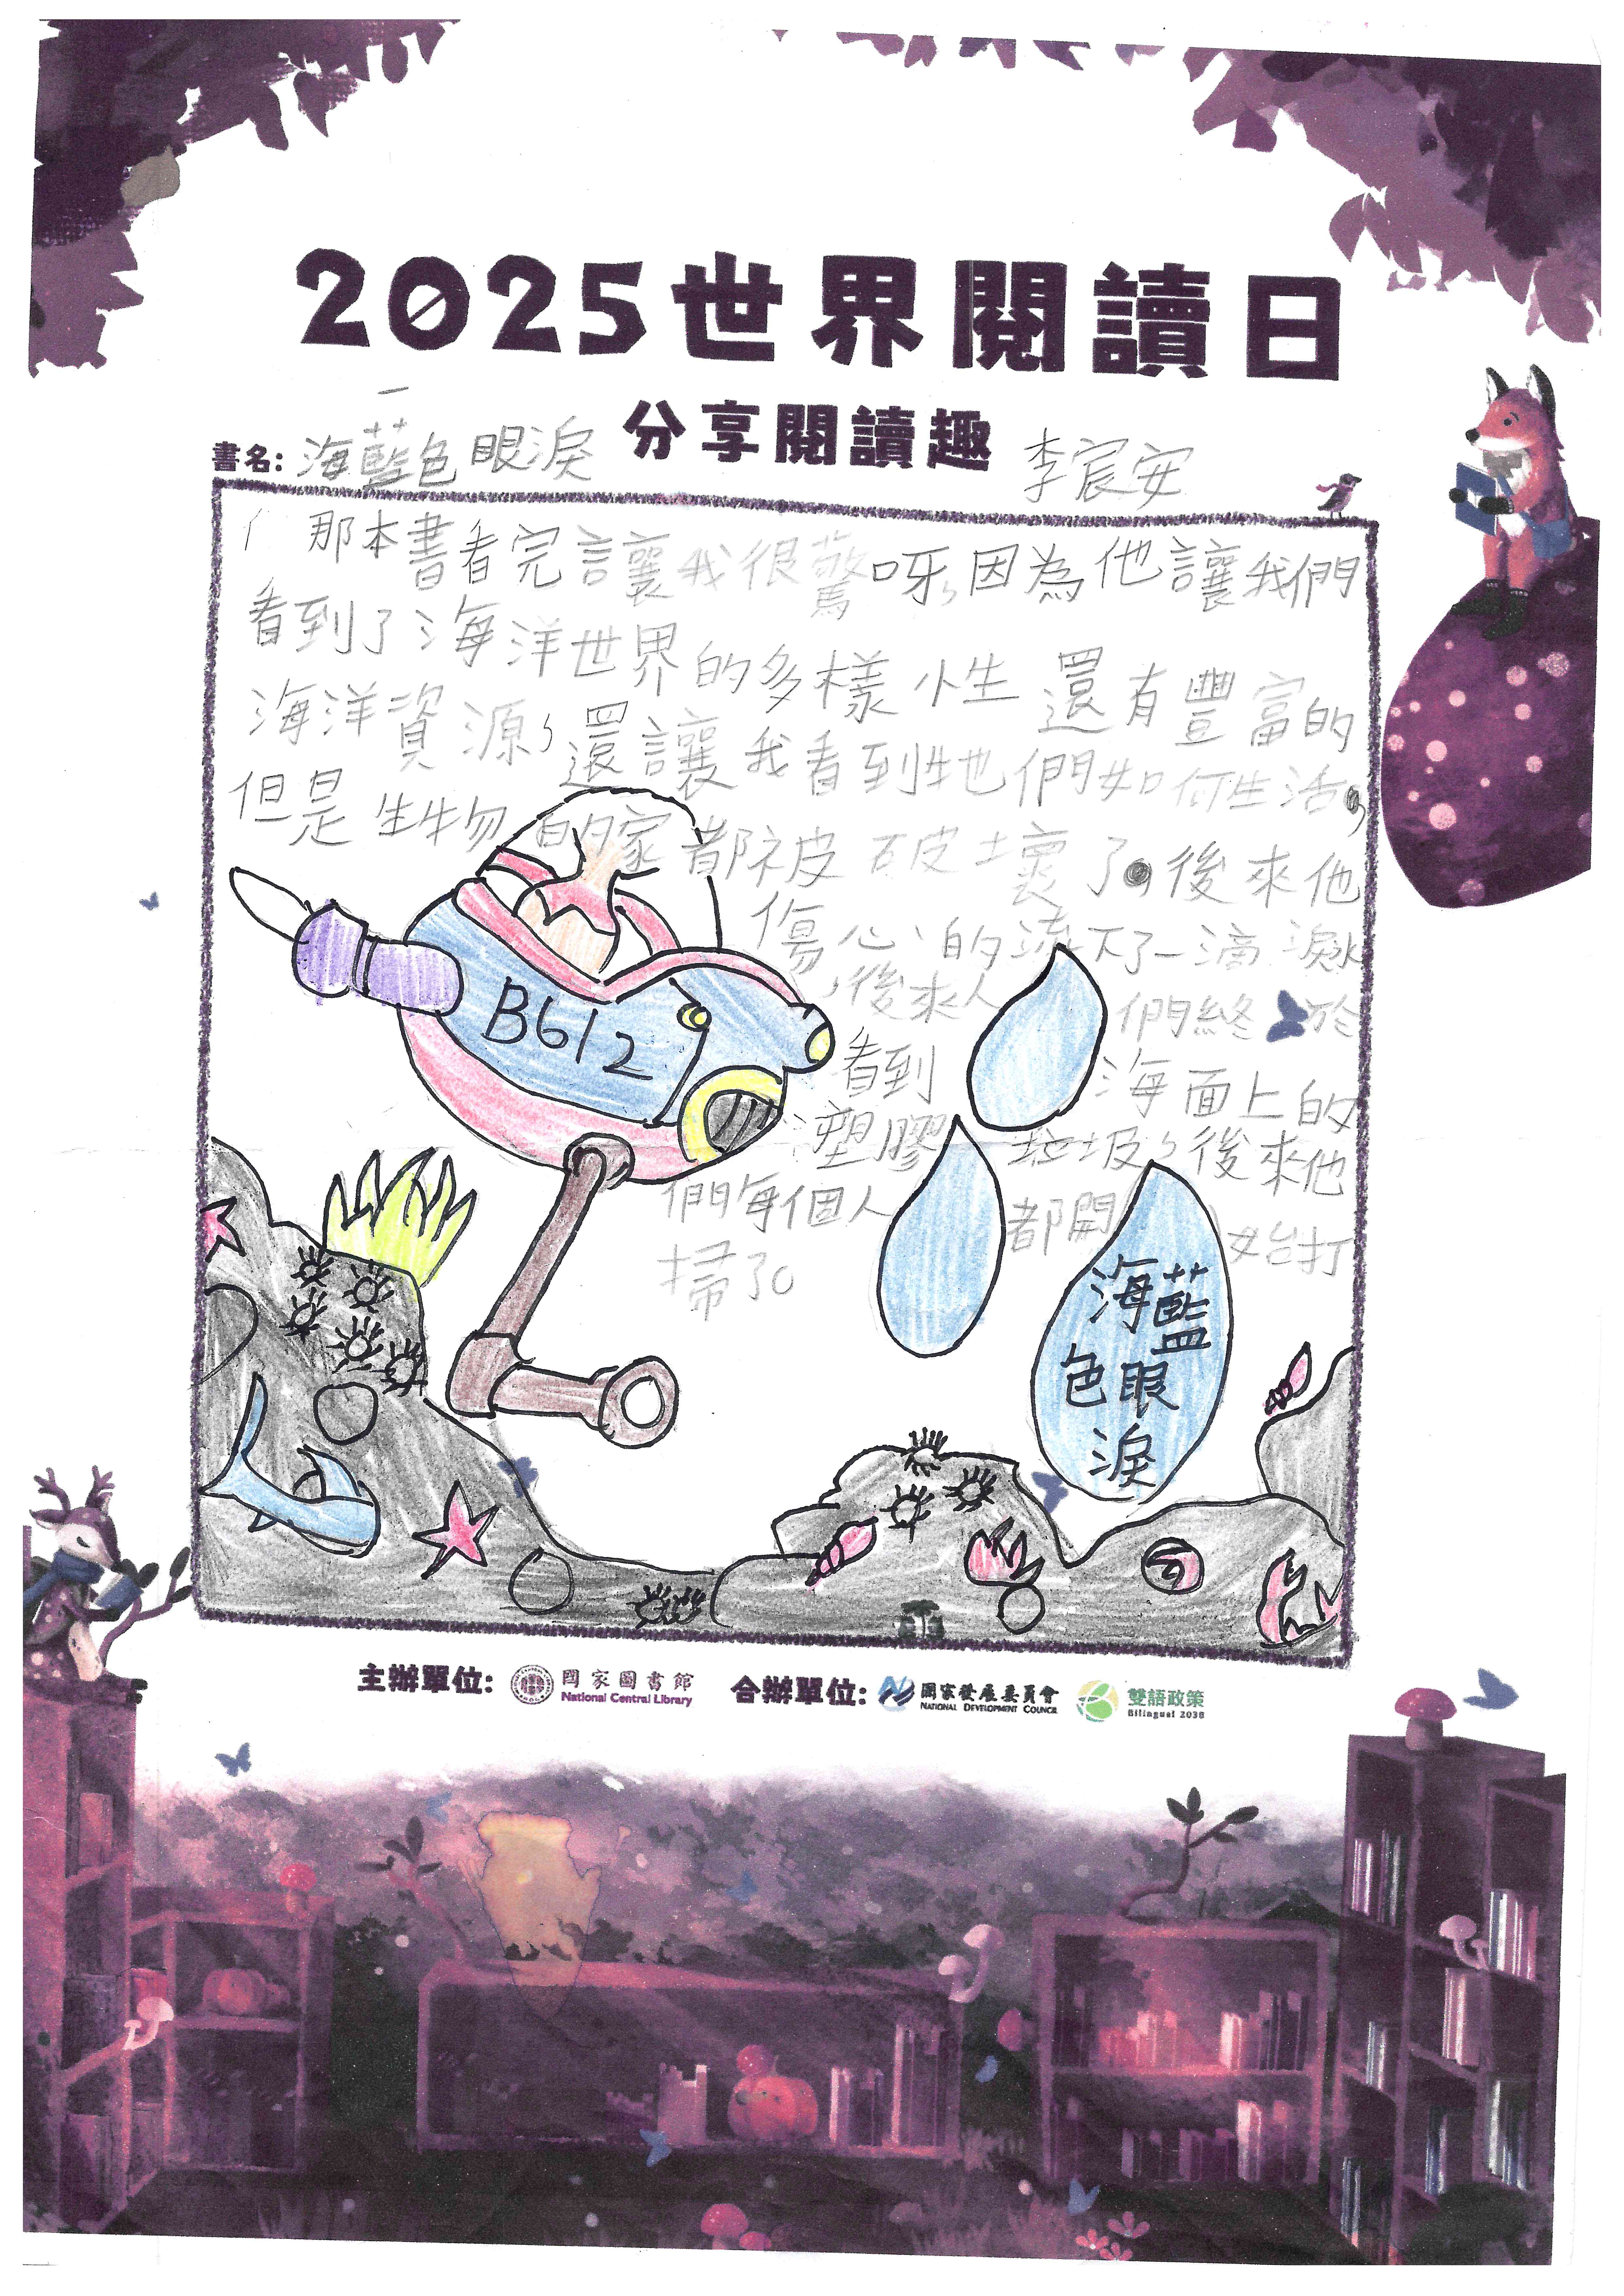 2025世界閱讀日
分享閱讀趣
書名: 海藍色眼淚
李宸安
那本書看完讓我很驚呀,因為他讓我們
看到了海洋世界的多樣性 還有豐富的
海洋資源,還讓我看到牠們如何生活,
但是生物的家都被破壞了。後來他
傷心的流下了一滴淚
,後來人們終於
看到海面上的
塑膠垃圾,後來他
們每個人都開始打
掃了。
B612
海藍
色眼
淚
主辦單位: 國家圖書館 合辦單位: 國家發展委員會 雙語政策
National Central Library NATIONAL DEVELOPMENT COUNCIL Bilingual 2030